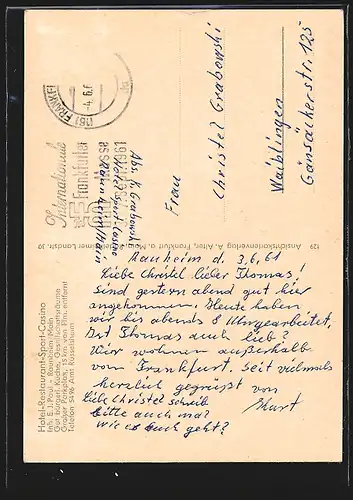 Raunheim d. 3.6.61
Liebe Christel lieber Thomas!
Sind gestern abend gut hier
angekommen. Heute haben
wir bis abends 8 Uhr gearbeitet,
Ist Thomas auch lieb?
Wir wohnen außerhalb
vom Frankfurt. Seit vielmals
herzlich gegrüßt von
Kurt
Liebe Christel schreib
bitte auch mal
wie es Euch geht?
Frau
Christel Grabowski
Waiblingen
Gänsäckerstr. 125
Abs. K. Grabowski
Hotel Sport-Casino
Raunheim/Main
(16) FRANKFURT
-4. 6. 6
Internationale
Frankfurter
Messe
1961
Hotel-Restaurant-Sport-Casino
Inh.: E. J. Paul - Raunheim/Main
Gut bürgerl. Küche, Gesellschaftsräume
Großer Parkplatz, 15 km. von Ffm. entfernt
Telefon 5496 Amt Rüsselsheim
129 Ansichtskartenverlag A. Alter, Frankfurt a. M.